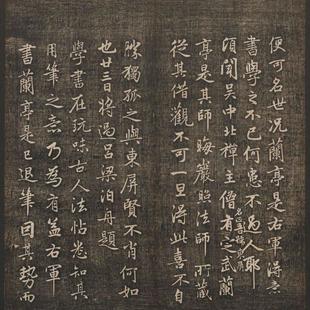 便可名世况蘭亭是右軍得意
書學之不已何患不過人耶
頃聞吳中北禪主僧有定武蘭
名正吾號東屏
亭是其師晦巖照法師所藏
從其借觀不可一旦得此喜不自
勝獨孤之與東屏賢不肖何如
也廿三日將過呂梁泊舟題
學書在玩味古人法帖悉知其
用筆之意乃為有益右軍
書蘭亭是已退筆因其勢而